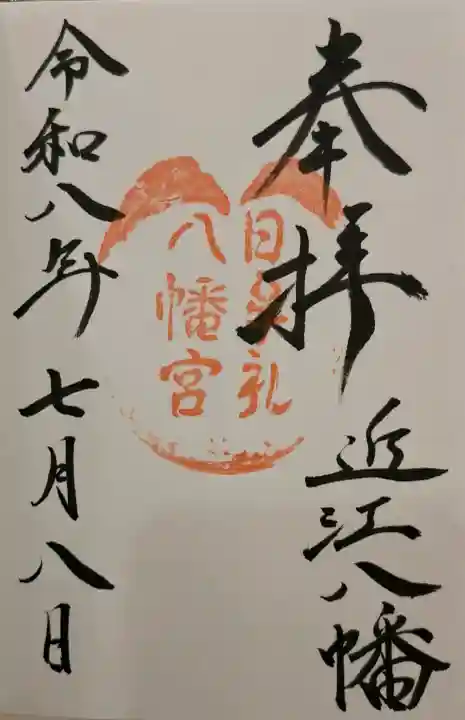 奉拝
近江八幡
日牟礼
八幡宮
令和八年 七月八日